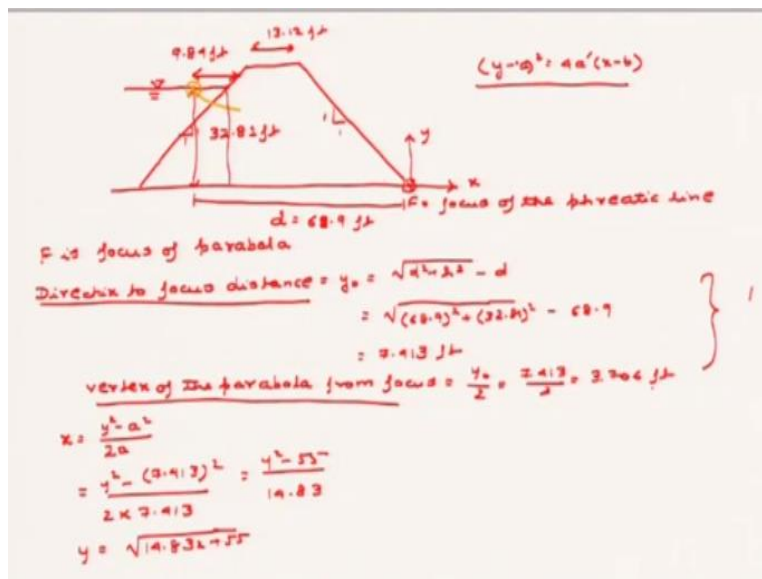 13.12 ft
9.84 ft
(y-a)² = 4a'(x-b)
32.81 ft
1
1
1
y
x
d = 68.9 ft
F = focus of the phreatic line
F is focus of parabola
Directrix to focus distance = y₀ = √(d²+h²) - d
= √((68.9)²+(32.81)²) - 68.9
= 7.413 ft
vertex of the parabola from focus = y₀/2 = 7.413/2 = 3.706 ft
x = (y²-a²)/2a
= (y²-(7.413)²)/(2×7.413) = (y²-55)/14.83
y = √(14.83x+55)